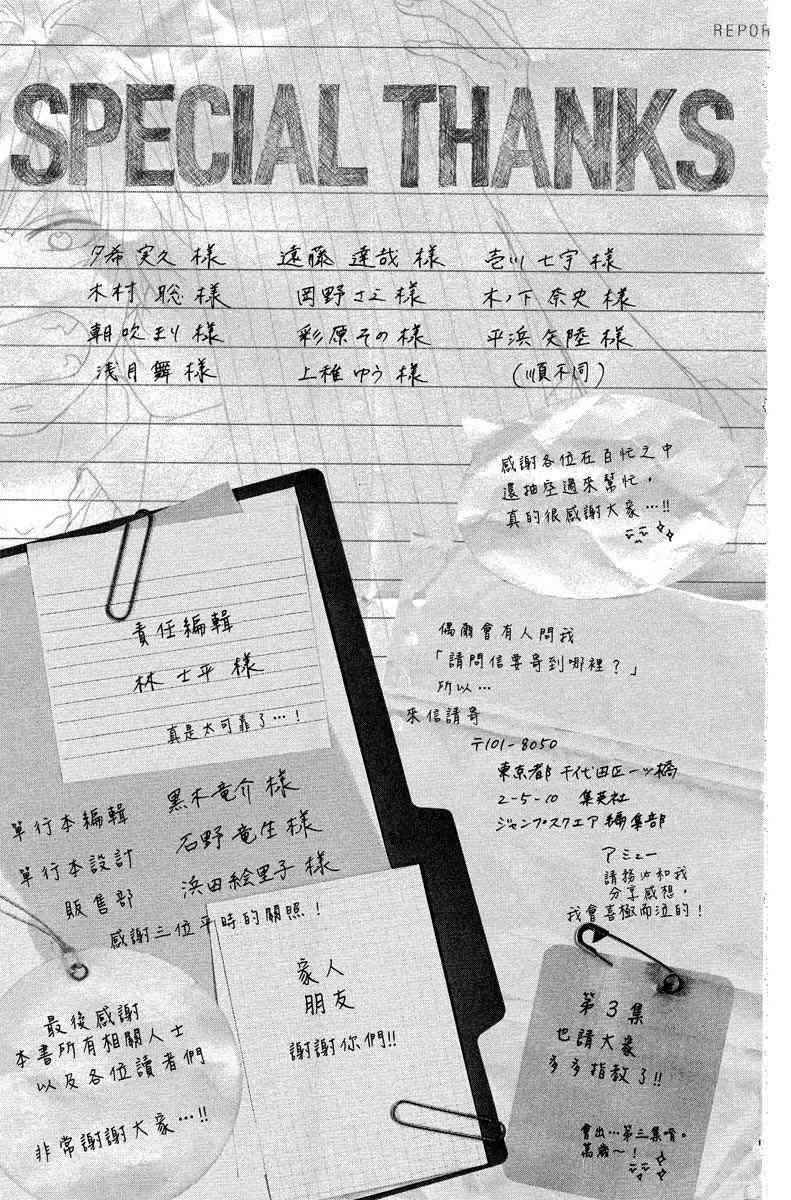 REPOR
SPECIAL THANKS
夕希 実久 様
遠藤 達哉 様
壱川 七宇 様
木村 聡 様
岡野 さえ 様
木ノ下 奈央 様
朝吹 まり 様
彩原 その 様
平浜 矢陸 様
浅月 舞 様
上稚 ゆう 様
(順不同)
感謝各位在百忙之中
還抽空過來幫忙，
真的很感謝大家…!!
責任編輯
林 士平 様
真是太可靠了…！
偶爾會有人問我
「請問信要寄到哪裡？」
所以…
來信請寄
〒101-8050
東京都 千代田区一ッ橋
2-5-10 集英社
ジャンプスクエア編集部
アミュー
請務必和我
分享感想，
我會喜極而泣的！
單行本編輯 黒木竜介 様
單行本設計 石野竜生 様
販售部 浜田絵里子 様
感謝三位平時的關照！
家人
朋友
謝謝你們!!
最後感謝
本書所有相關人士
以及各位讀者們
非常謝謝大家…!!
第3集
也請大家
多多指教了!!
會出…第三集唷。
萬歲～！